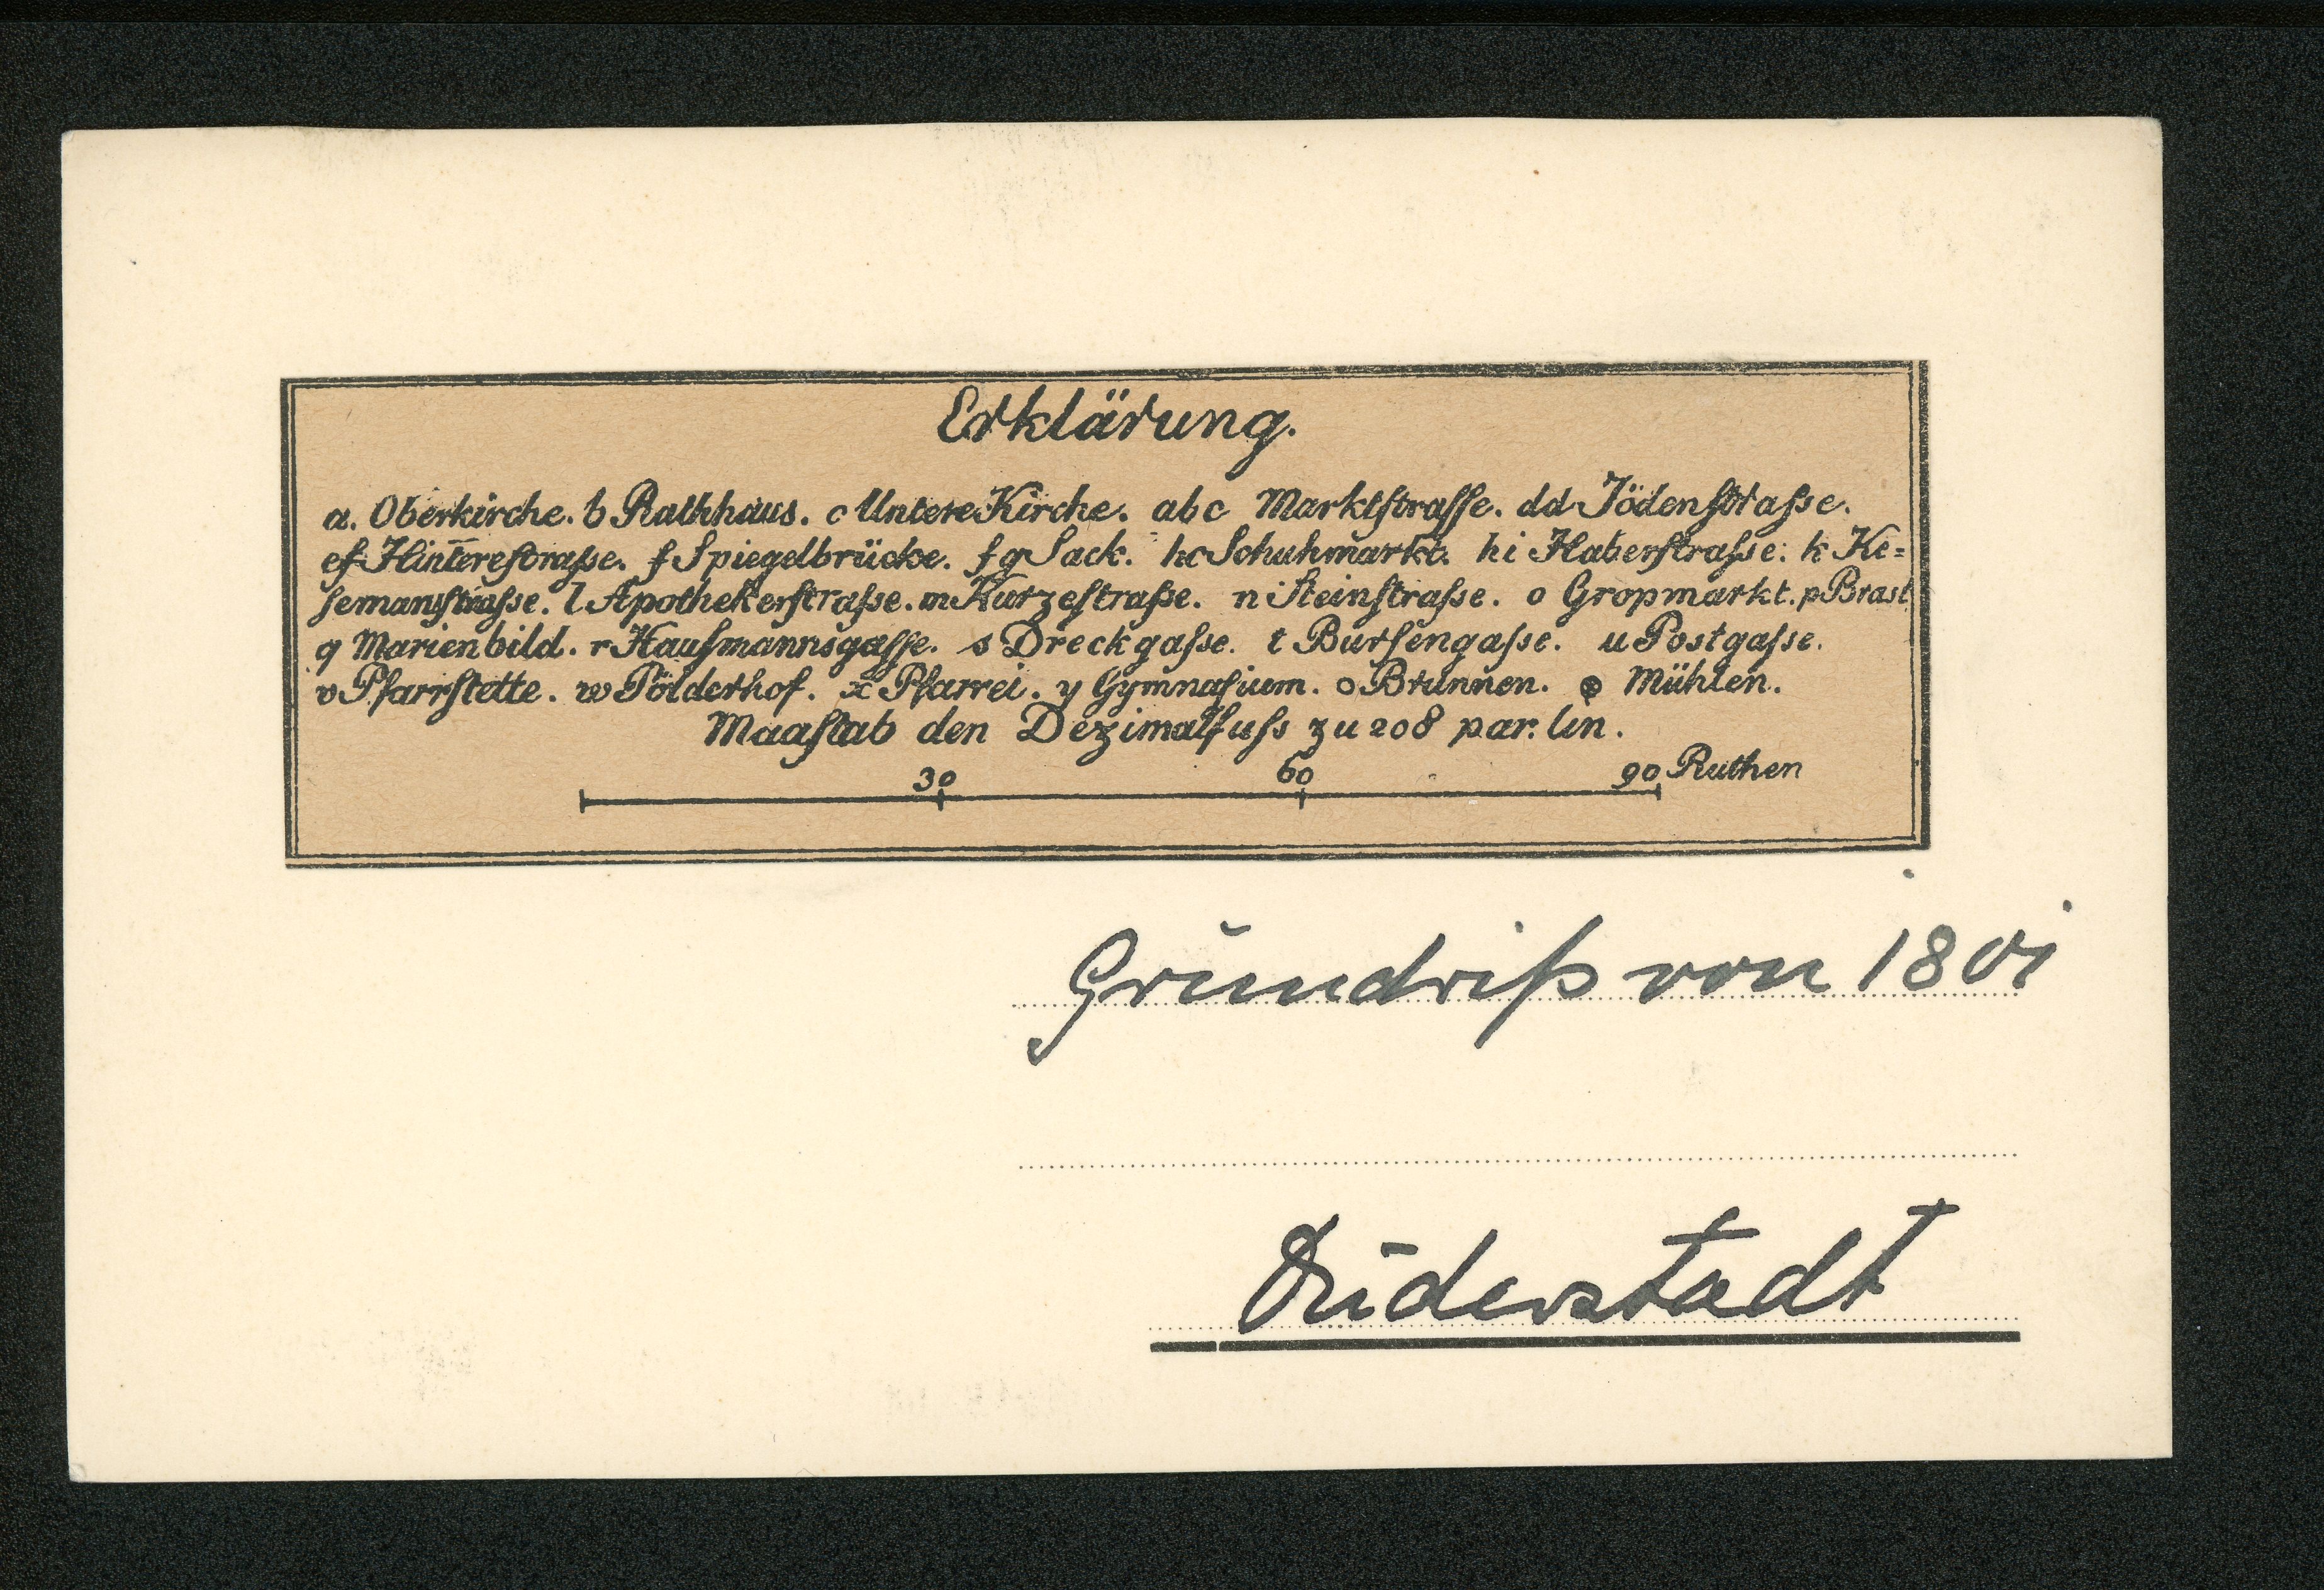 Erklärung.
a. Oberkirche. b Rathhaus. c Untere Kirche. abc Marktstrasse. dd Jödenstrasse.
ef Hinterestrasse. f Spiegelbrücke. fg Sack. hc Schuhmarkt. hi Haberstrasse. k Ke=
semanstrasse. l Apothekerstrasse. m Kurzestrasse. n Steinstrasse. o Gropmarkt. p Brast
q Marienbild. r Hausmannsgasse. s Dreckgasse. t Bursengasse. u Postgasse.
v Pfarrstette. w Pölderhof. x Pfarrei. y Gymnasium. o Brunnen. Mühlen.
Maastab den Dezimalfuss zu 208 par. lin.
30 60 90 Ruthen
Grundriß von 1801
Duderstadt